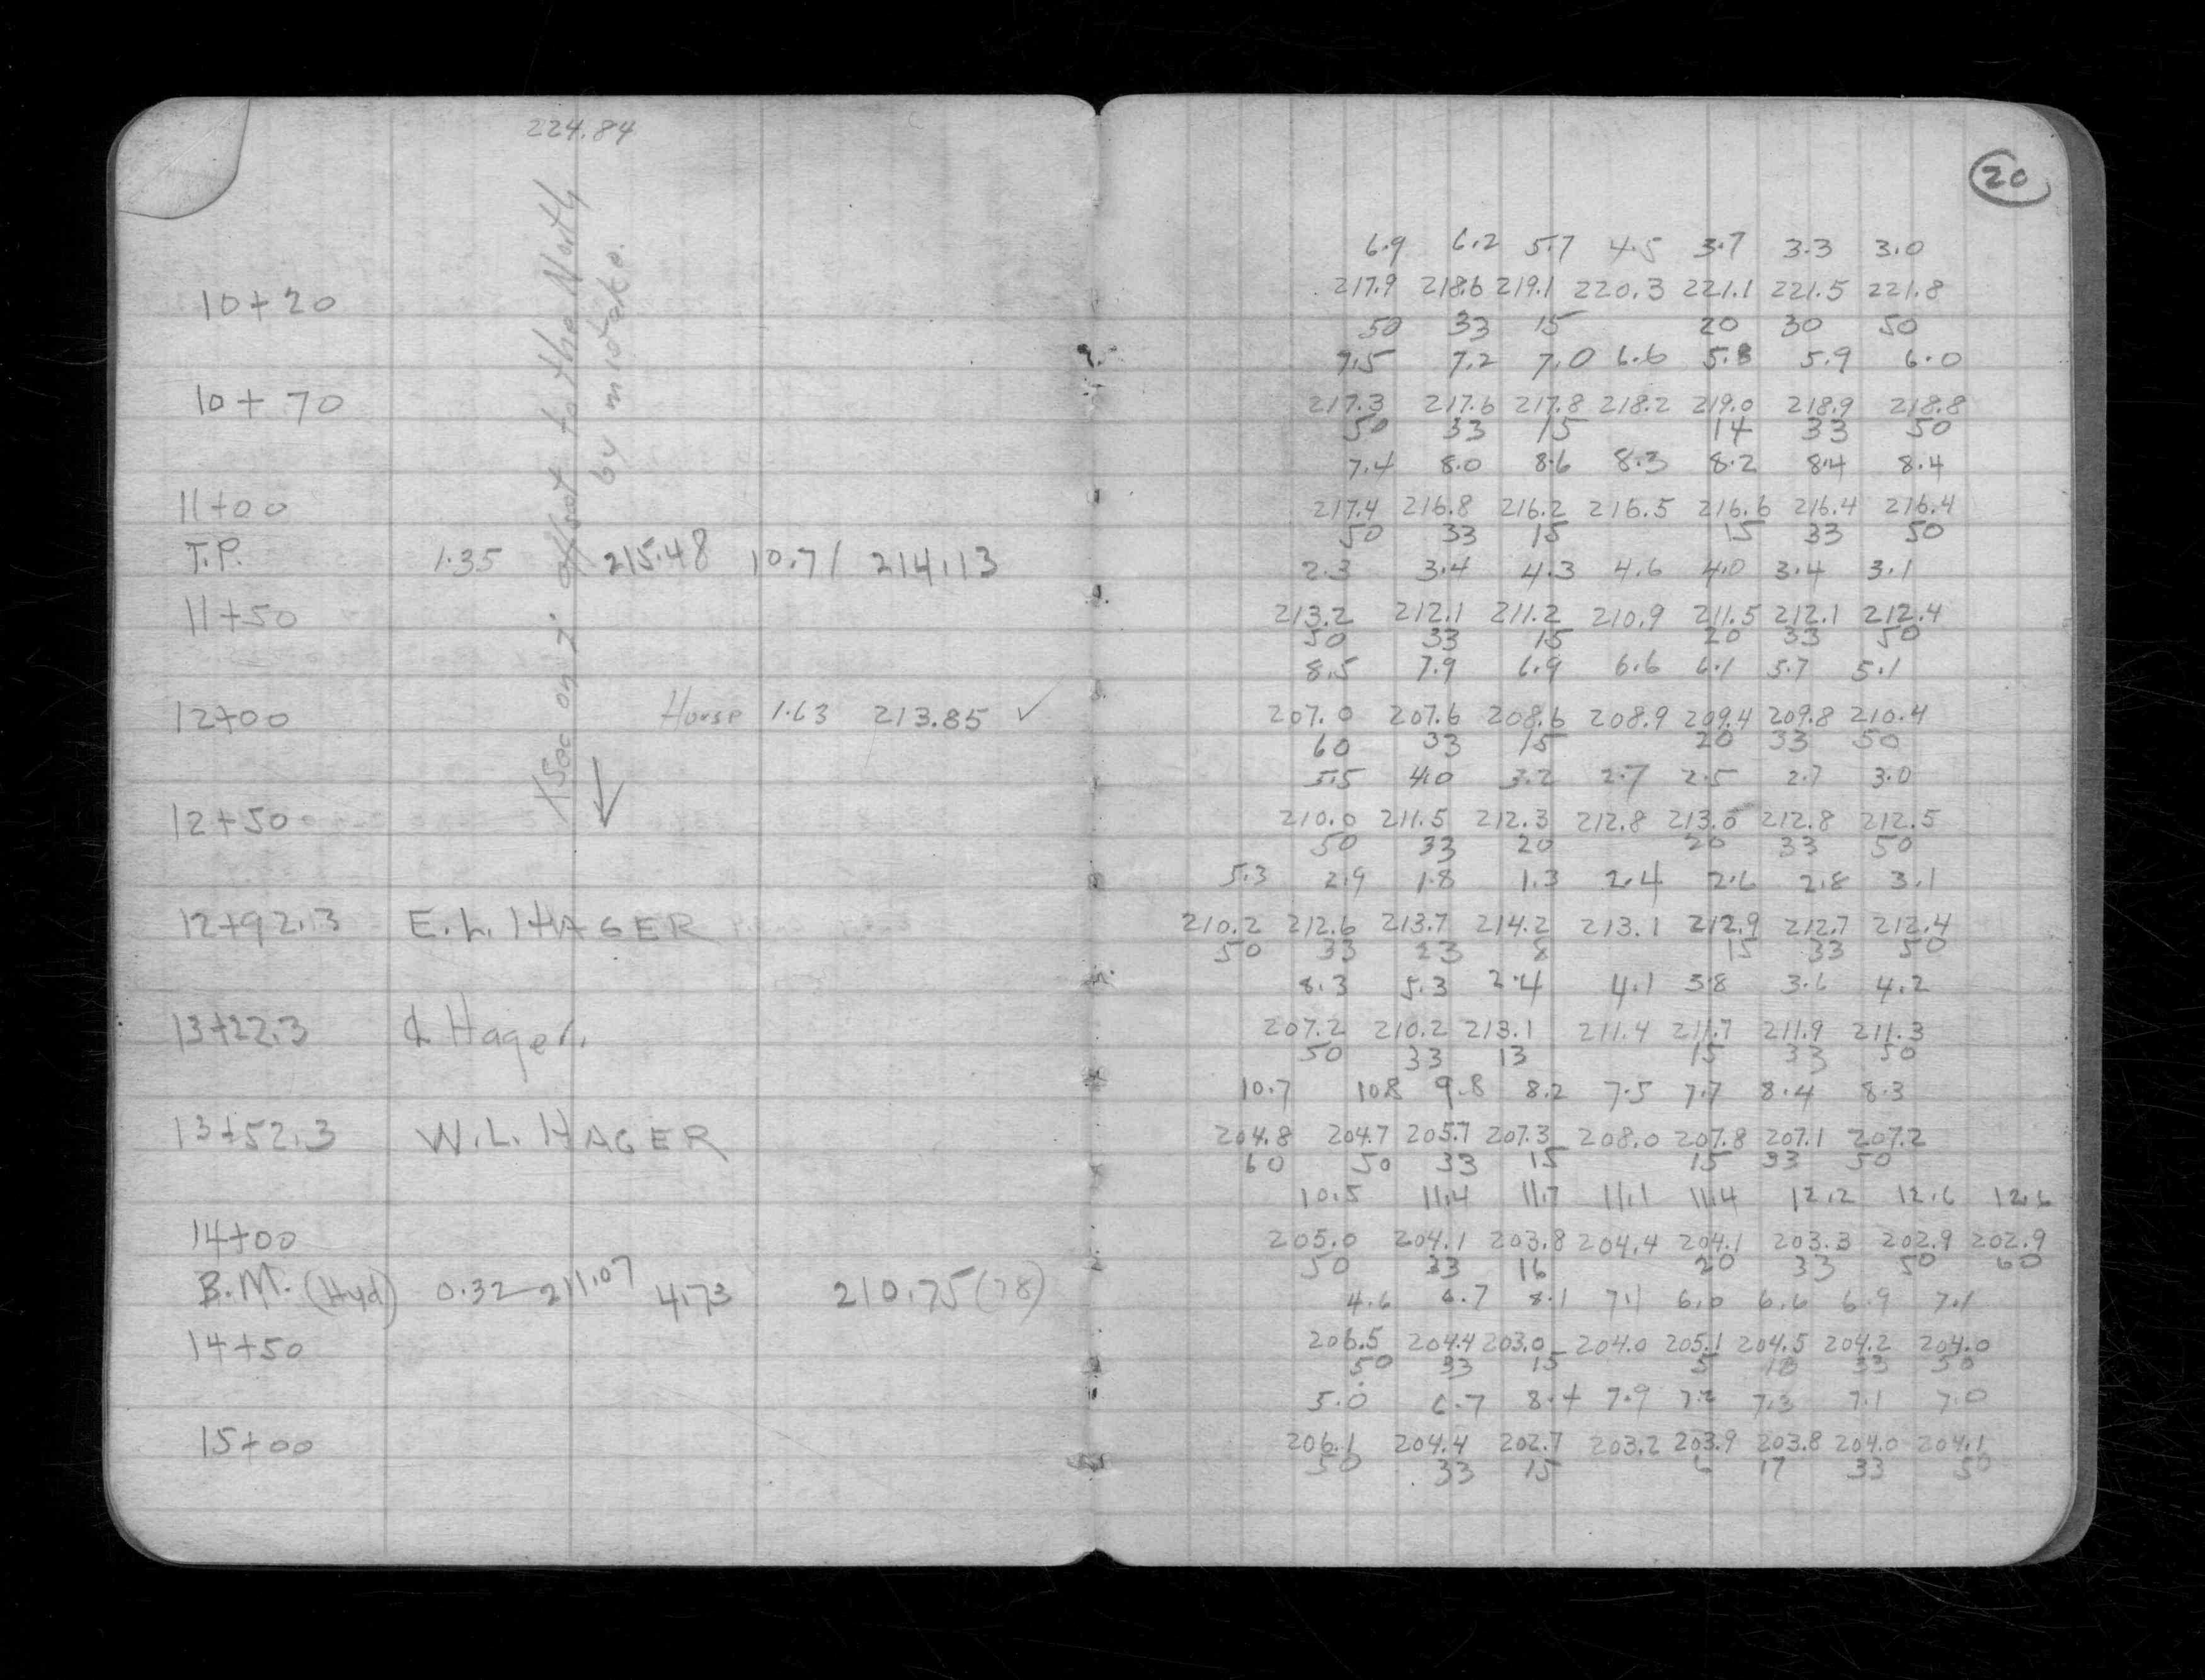 224.84
XSec on 7' offset to the North
by mistake.
10+20
10+70
11+00
T.P. 1.35 215.48 10.71 214.13
11+50
12+00 House 1.63 213.85 ✓
12+50
12+92.3 E.L. HAGER
13+22.3 ℄ Hager.
13+52.3 W.L. HAGER
14+00
B.M. (Hyd) 0.32 211.07 4.73 210.75 (78)
14+50
15+00
20
6.9 6.2 5.7 4.5 3.7 3.3 3.0
217.9 218.6 219.1 220.3 221.1 221.5 221.8
50 33 15 20 30 50
7.5 7.2 7.0 6.6 5.8 5.9 6.0
217.3 217.6 217.8 218.2 219.0 218.9 218.8
50 33 15 14 33 50
7.4 8.0 8.6 8.3 8.2 8.4 8.4
217.4 216.8 216.2 216.5 216.6 216.4 216.4
50 33 15 15 33 50
2.3 3.4 4.3 4.6 4.0 3.4 3.1
213.2 212.1 211.2 210.9 211.5 212.1 212.4
50 33 15 20 33 50
8.5 7.9 6.9 6.6 6.1 5.7 5.1
207.0 207.6 208.6 208.9 209.4 209.8 210.4
60 33 15 20 33 50
5.5 4.0 3.2 2.7 2.5 2.7 3.0
210.0 211.5 212.3 212.8 213.0 212.8 212.5
50 33 20 20 33 50
5.3 2.9 1.8 1.3 2.4 2.6 2.8 3.1
210.2 212.6 213.7 214.2 213.1 212.9 212.7 212.4
50 33 23 8 15 33 50
8.3 5.3 2.4 4.1 3.8 3.6 4.2
207.2 210.2 213.1 211.4 211.7 211.9 211.3
50 33 13 15 33 50
10.7 10.8 9.8 8.2 7.5 7.7 8.4 8.3
204.8 204.7 205.7 207.3 208.0 207.8 207.1 207.2
60 50 33 15 15 33 50
10.5 11.4 11.7 11.1 11.4 12.2 12.6 12.6
205.0 204.1 203.8 204.4 204.1 203.3 202.9 202.9
50 33 16 20 33 50 60
4.6 6.7 8.1 7.1 6.0 6.6 6.9 7.1
206.5 204.4 203.0 204.0 205.1 204.5 204.2 204.0
50 33 15 5 18 33 50
5.0 6.7 8.4 7.9 7.2 7.3 7.1 7.0
206.1 204.4 202.7 203.2 203.9 203.8 204.0 204.1
50 33 15 6 17 33 50